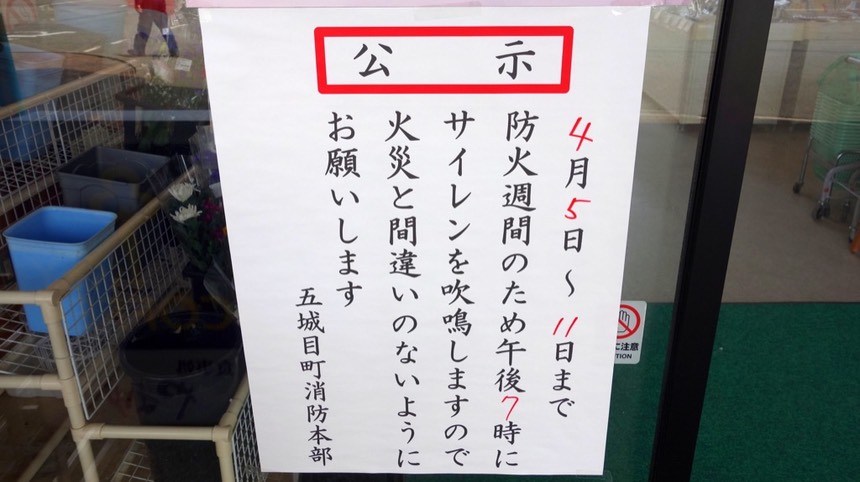 公示
4月5日～11日まで
防火週間のため午後7時に
サイレンを吹鳴しますので
火災と間違いのないように
お願いします
五城目町消防本部
に注意
TION